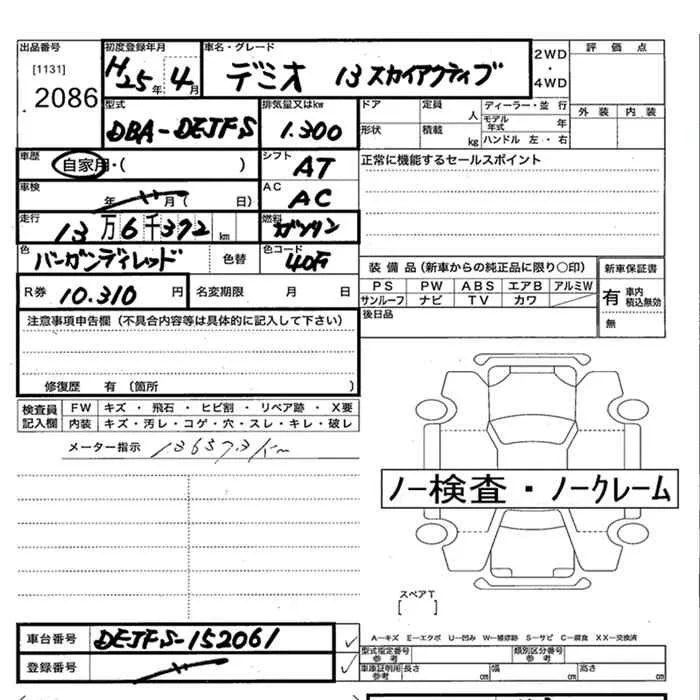 出品番号 初度登録年月 車名・グレード 2WD・4WD 評価点
[1131] 2086 H25年 4月 デミオ 13スカイアクティブ
外装 内装
型式 排気量又はkw ドア 定員 人 ディーラー・並行
DBA-DEJFS 1.300 形状 積載 kg モデル年式 年
ハンドル 左・右
車歴 自家用・( ) シフト AT 正常に機能するセールスポイント
車検 年 月( 日) AC AC
走行 13万6千392km 燃料 ガソリン
色 バーガンディレッド 色替 色コード
装備品(新車からの純正品に限り○印) 新車保証書
R券 10.310円 名変期限 月 日
PS PW ABS エアB アルミW
サンルーフ ナビ TV カワ
有 車内積込無効
無
後日品
注意事項申告欄(不具合内容等は具体的に記入して下さい)
修復歴 有(箇所 )
検査員記入欄 FW キズ・飛石・ヒビ割・リペア跡・X要
内装 キズ・汚レ・コゲ・穴・スレ・キレ・破レ
メーター指示
ノー検査・ノークレーム
スペアT
[ ]
車台番号 DEJFS-152061
A-キズ E-エクボ U-凹み W-補修跡 S-サビ C-腐食 XX-交換済
登録番号
型式指定番号 参考 類別区分番号 参考
車庫証明用参考 長さ cm 幅 cm 高さ cm